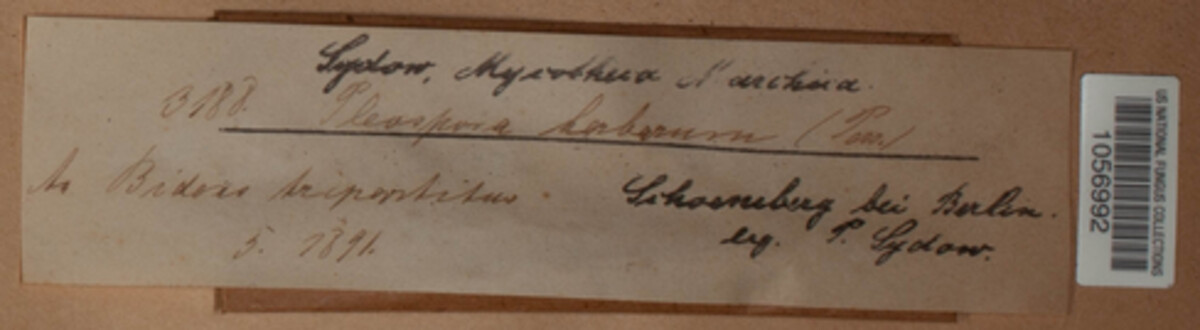 Sydow, Mycotheca Marchica.
3188. Pleospora herbarum (Pers.)
An Bidens tripartitus. Schoeneberg bei Berlin.
5. 1891. leg. P. Sydow.
US NATIONAL FUNGUS COLLECTIONS
1056992